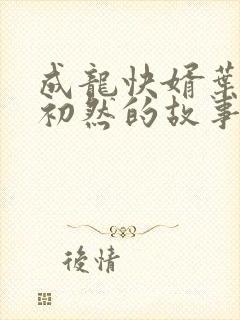 成龍快婿葉
初然的故事
後情